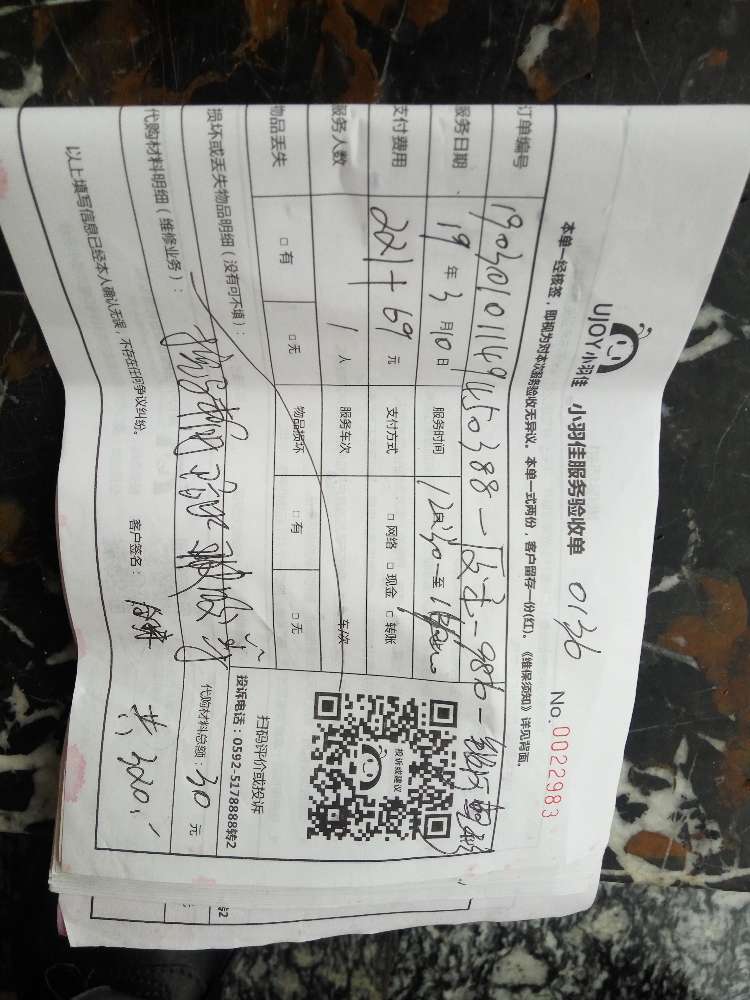 UJOY小羽佳 小羽佳服务验收单 0136
No. 0022983
本单一经核签，即视为对本次服务验收无异议。本单一式两份，客户留存一份(红)。《维保须知》详见背面。
订单编号 19030101149450388
服务日期 19 年 3 月 10 日 服务时间 12:30 至
支付费用 221+69 元 支付方式 □ 网络 □ 现金 □ 转账
服务人数 1 人 服务车次 车次
物品丢失 □ 有 □ 无 物品损坏 □ 有 □ 无
投诉或建议
扫码评价或投诉
投诉电话：0592-5178888转2
损坏或丢失物品明细（没有可不填）：
代购材料明细（维修业务）：
代购材料总额：30 元
以上填写信息已经本人确认无误，不存在任何争议纠纷。
客户签名：
共320